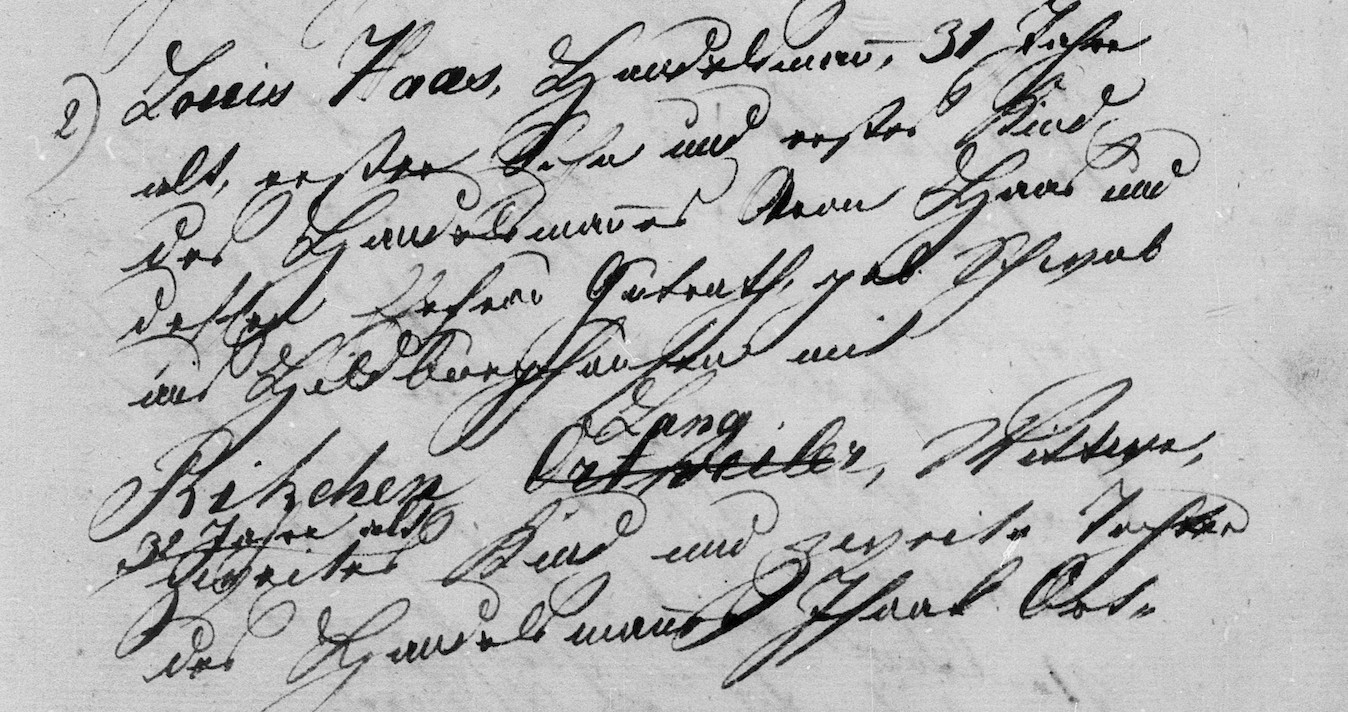 2) Louis Haas, Handelsmañ, 31 Jahre
alt, erster Sohn und erstes Kind
des Handelsmañes Aron Haas und
dessen Ehefrau Gutrath, geb. Schwab
aus Hildburghausen mit
Lang
Rikchen Ortweiler, Wittwe,
31 Jahre alt
zweites Kind und zweite Tochter
des Handelsmañes Isaak Ort-